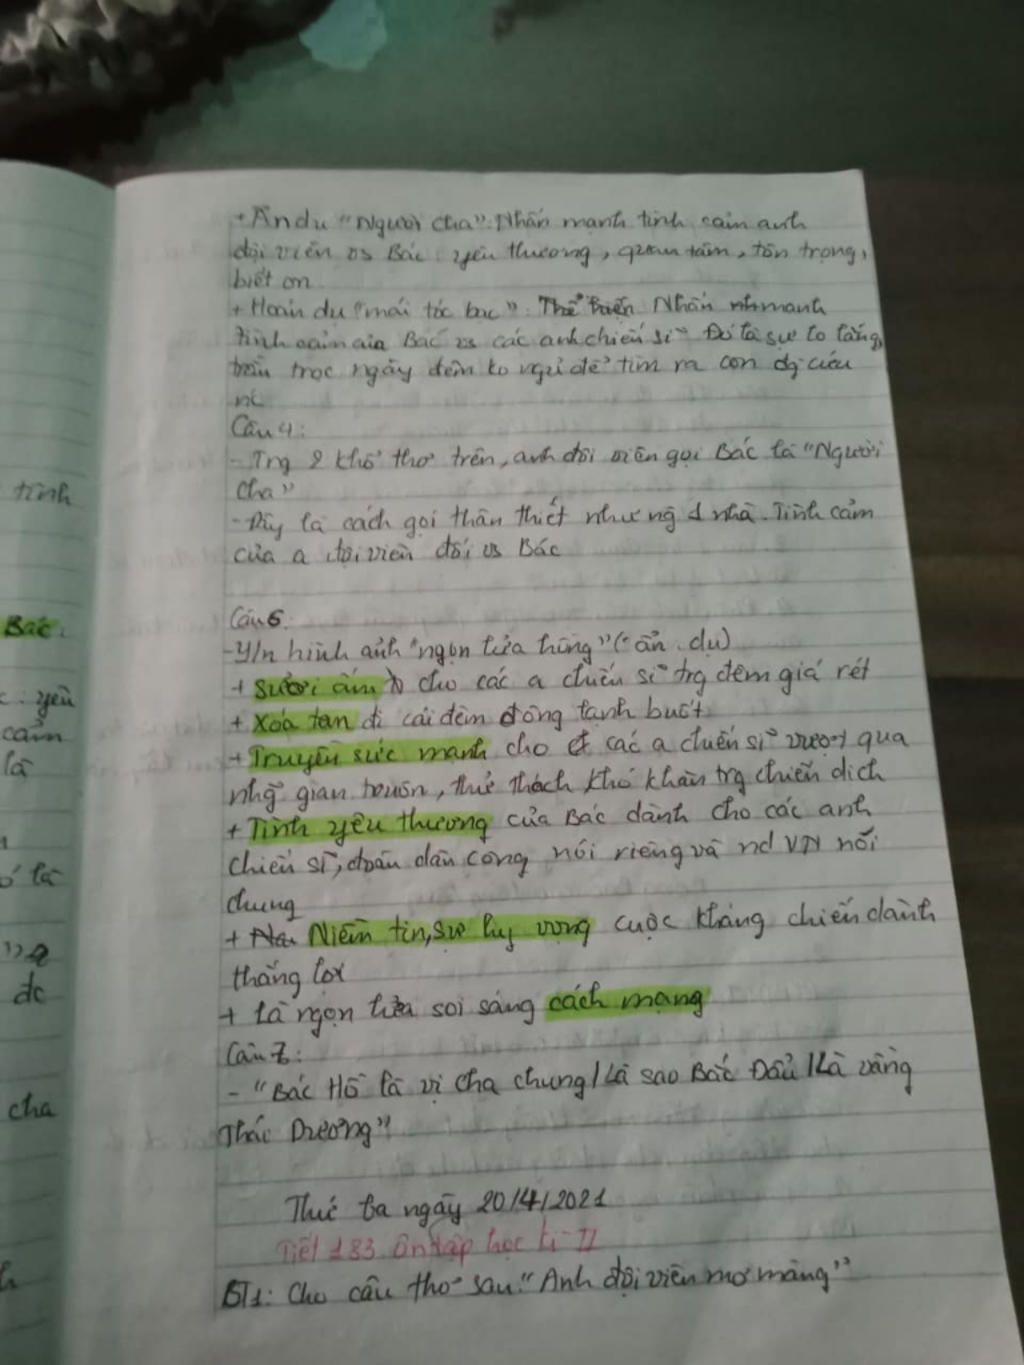 + Ẩn dụ "Người cha": Nhấn mạnh tình cảm anh
đội viên vs Bác: yêu thương, quan tâm, tôn trọng,
biết ơn
+ Hoán dụ "mái tóc bạc": Nhấn mạnh
tình cảm của Bác vs các anh chiến sĩ Đó là sự lo lắng,
trằn trọc ngày đêm ko nghỉ để tìm ra con đg cứu
nc
Câu 4:
- Trg 2 khổ thơ trên, anh đội viên gọi Bác là "Người
Cha"
- Đây là cách gọi thân thiết như ng 1 nhà. Tình cảm
của a đội viên đối vs Bác
Câu 6:
- Y/n hình ảnh "ngọn lửa hồng" (ẩn dụ)
+ Sưởi ấm cho các a chiến sĩ trg đêm giá rét
+ Xóa tan đi cái đêm đông lạnh buốt
+ Truyền sức mạnh cho các a chiến sĩ vượt qua
nhg gian truân, thử thách khó khăn trg chiến dịch
+ Tình yêu thương của Bác dành cho các anh
chiến sĩ, đoàn dân công nói riêng và nd VN nói
chung
+ Niềm tin, sự hy vọng cuộc kháng chiến dành
thắng lợi
+ Là ngọn lửa soi sáng cách mạng
Câu 7:
- "Bác Hồ là vị cha chung / Là sao Bắc Đẩu / Là vầng
Thái Dương"
Thứ ba ngày 20/4/2021
Tiết 183 Ôn tập học kì II
BT1: Cho câu thơ sau: "Anh đội viên mơ màng"
tình
Bác:
c: yêu
cảm
là
ó là
đc
cha